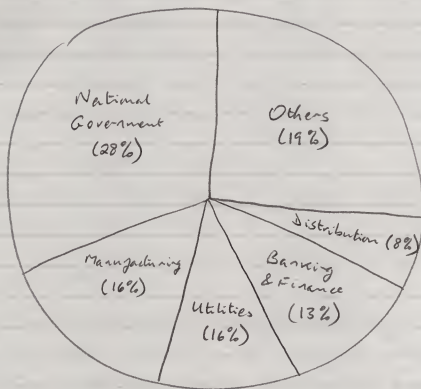 National
Government
(28%)
Others
(19%)
Distribution (8%)
Banking
& Finance
(13%)
Utilities
(16%)
Manufacturing
(16%)